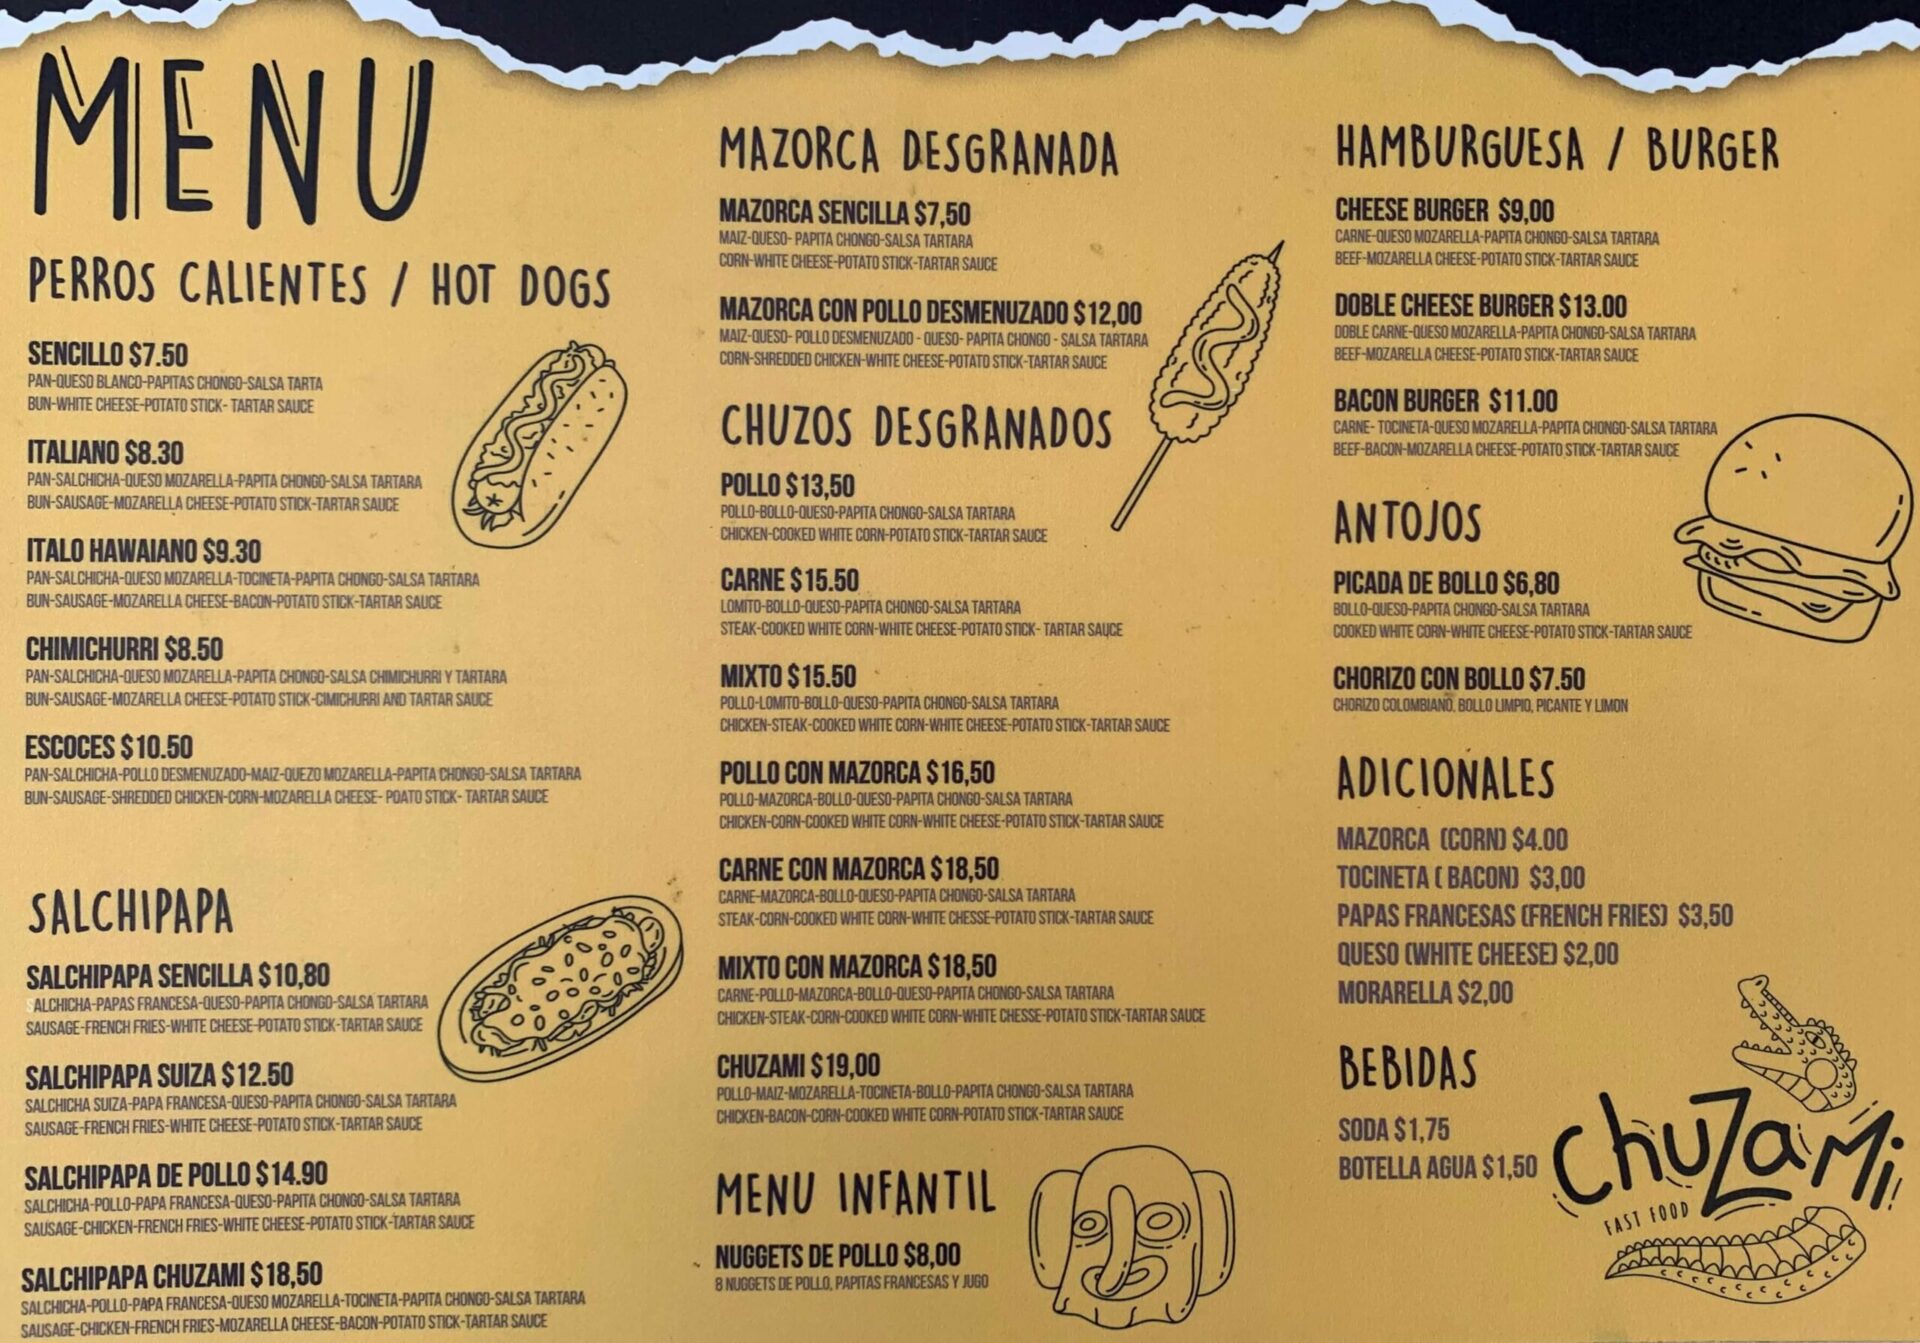 MENU
PERROS CALIENTES / HOT DOGS
SENCILLO $7.50
PAN-QUESO BLANCO-PAPITAS CHONGO-SALSA TARTA
BUN-WHITE CHEESE-POTATO STICK- TARTAR SAUCE
ITALIANO $8.30
PAN-SALCHICHA-QUESO MOZARELLA-PAPITA CHONGO-SALSA TARTARA
BUN-SAUSAGE-MOZARELLA CHEESE-POTATO STICK-TARTAR SAUCE
ITALO HAWAIANO $9.30
PAN-SALCHICHA-QUESO MOZARELLA-TOCINETA-PAPITA CHONGO-SALSA TARTARA
BUN-SAUSAGE-MOZARELLA CHEESE-BACON-POTATO STICK-TARTAR SAUCE
CHIMICHURRI $8.50
PAN-SALCHICHA-QUESO MOZARELLA-PAPITA CHONGO-SALSA CHIMICHURRI Y TARTARA
BUN-SAUSAGE-MOZARELLA CHEESE-POTATO STICK-CIMICHURRI AND TARTAR SAUCE
ESCOCES $10.50
PAN-SALCHICHA-POLLO DESMENUZADO-MAIZ-QUEZO MOZARELLA-PAPITA CHONGO-SALSA TARTARA
BUN-SAUSAGE-SHREDDED CHICKEN-CORN-MOZARELLA CHEESE- POATO STICK- TARTAR SAUCE
SALCHIPAPA
SALCHIPAPA SENCILLA $10,80
SALCHICHA-PAPAS FRANCESA-QUESO-PAPITA CHONGO-SALSA TARTARA
SAUSAGE-FRENCH FRIES-WHITE CHEESE-POTATO STICK-TARTAR SAUCE
SALCHIPAPA SUIZA $12.50
SALCHICHA SUIZA-PAPA FRANCESA-QUESO-PAPITA CHONGO-SALSA TARTARA
SAUSAGE-FRENCH FRIES-WHITE CHEESE-POTATO STICK-TARTAR SAUCE
SALCHIPAPA DE POLLO $14.90
SALCHICHA-POLLO-PAPA FRANCESA-QUESO-PAPITA CHONGO-SALSA TARTARA
SAUSAGE-CHICKEN-FRENCH FRIES-WHITE CHEESE-POTATO STICK-TARTAR SAUCE
SALCHIPAPA CHUZAMI $18,50
SALCHICHA-POLLO-PAPA FRANCESA-QUESO MOZARELLA-TOCINETA-PAPITA CHONGO-SALSA TARTARA
SAUSAGE-CHICKEN-FRENCH FRIES-MOZARELLA CHEESE-BACON-POTATO STICK-TARTAR SAUCE
MAZORCA DESGRANADA
MAZORCA SENCILLA $7,50
MAIZ-QUESO- PAPITA CHONGO-SALSA TARTARA
CORN-WHITE CHEESE-POTATO STICK-TARTAR SAUCE
MAZORCA CON POLLO DESMENUZADO $12,00
MAIZ-QUESO- POLLO DESMENUZADO - QUESO- PAPITA CHONGO - SALSA TARTARA
CORN-SHREDDED CHICKEN-WHITE CHEESE-POTATO STICK-TARTAR SAUCE
CHUZOS DESGRANADOS
POLLO $13,50
POLLO-BOLLO-QUESO-PAPITA CHONGO-SALSA TARTARA
CHICKEN-COOKED WHITE CORN-POTATO STICK-TARTAR SAUCE
CARNE $15.50
LOMITO-BOLLO-QUESO-PAPITA CHONGO-SALSA TARTARA
STEAK-COOKED WHITE CORN-WHITE CHEESE-POTATO STICK- TARTAR SAUCE
MIXTO $15.50
POLLO-LOMITO-BOLLO-QUESO-PAPITA CHONGO-SALSA TARTARA
CHICKEN-STEAK-COOKED WHITE CORN-WHITE CHEESE-POTATO STICK-TARTAR SAUCE
POLLO CON MAZORCA $16,50
POLLO-MAZORCA-BOLLO-QUESO-PAPITA CHONGO-SALSA TARTARA
CHICKEN-CORN-COOKED WHITE CORN-WHITE CHEESE-POTATO STICK-TARTAR SAUCE
CARNE CON MAZORCA $18,50
CARNE-MAZORCA-BOLLO-QUESO-PAPITA CHONGO-SALSA TARTARA
STEAK-CORN-COOKED WHITE CORN-WHITE CHESSE-POTATO STICK-TARTAR SAUCE
MIXTO CON MAZORCA $18,50
CARNE-POLLO-MAZORCA-BOLLO-QUESO-PAPITA CHONGO-SALSA TARTARA
CHICKEN-STEAK-CORN-COOKED WHITE CORN-WHITE CHESSE-POTATO STICK-TARTAR SAUCE
CHUZAMI $19,00
POLLO-MAIZ-MOZARELLA-TOCINETA-BOLLO-PAPITA CHONGO-SALSA TARTARA
CHICKEN-BACON-CORN-COOKED WHITE CORN-POTATO STICK-TARTAR SAUCE
MENU INFANTIL
NUGGETS DE POLLO $8,00
8 NUGGETS DE POLLO, PAPITAS FRANCESAS Y JUGO
HAMBURGUESA / BURGER
CHEESE BURGER $9,00
CARNE-QUESO MOZARELLA-PAPITA CHONGO-SALSA TARTARA
BEEF-MOZARELLA CHEESE-POTATO STICK-TARTAR SAUCE
DOBLE CHEESE BURGER $13.00
DOBLE CARNE-QUESO MOZARELLA-PAPITA CHONGO-SALSA TARTARA
BEEF-MOZARELLA CHEESE-POTATO STICK-TARTAR SAUCE
BACON BURGER $11.00
CARNE- TOCINETA-QUESO MOZARELLA-PAPITA CHONGO-SALSA TARTARA
BEEF-BACON-MOZARELLA CHEESE-POTATO STICK-TARTAR SAUCE
ANTOJOS
PICADA DE BOLLO $6,80
BOLLO-QUESO-PAPITA CHONGO-SALSA TARTARA
COOKED WHITE CORN-WHITE CHEESE-POTATO STICK-TARTAR SAUCE
CHORIZO CON BOLLO $7.50
CHORIZO COLOMBIANO, BOLLO LIMPIO, PICANTE Y LIMON
ADICIONALES
MAZORCA (CORN) $4.00
TOCINETA ( BACON) $3,00
PAPAS FRANCESAS (FRENCH FRIES) $3,50
QUESO (WHITE CHEESE) $2,00
MORARELLA $2,00
BEBIDAS
SODA $1,75
BOTELLA AGUA $1,50
ChuZaMi
FAST FOOD